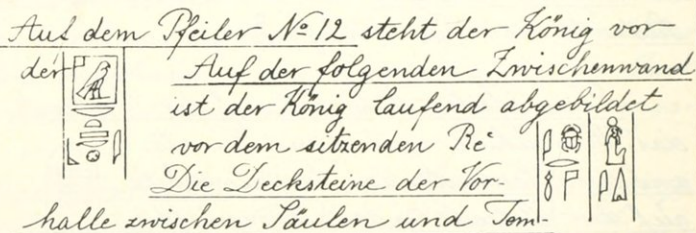 Auf dem Pfeiler No 12 steht der König vor
der
Auf der folgenden Zwischenwand
ist der König laufend abgebildet
vor dem sitzenden Re
Die Decksteine der Vor-
halle zwischen Säulen und Tem-